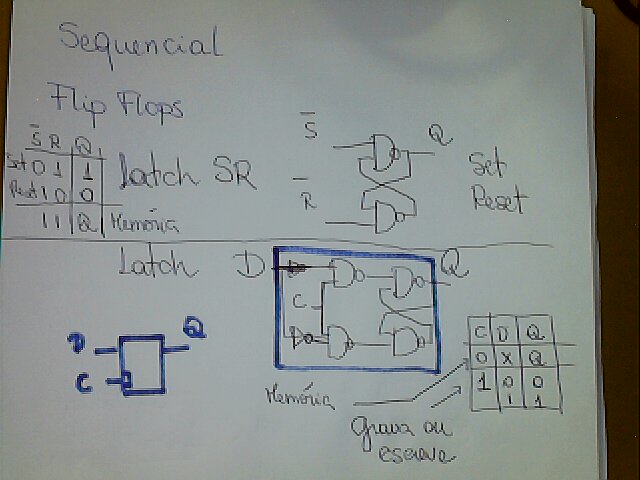 Sequencial
Flip Flops
S̅ R Q
Set 0 1 1
Reset 1 0 0
1 1 Q Memória
Latch SR
S̅
R̅
Q
Set
Reset
Latch D
C
Q
D
C
Q
C D Q
0 X Q
1 0 0
1 1
Memória
Grava ou
escreve